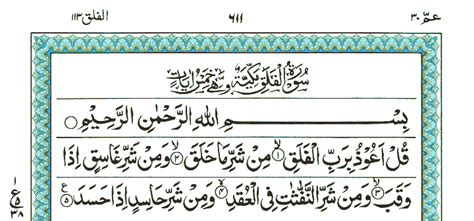 عمّ ٣٠ ٦١١ الفلق ١١٣
سُوْرَةُ الْفَلَقِ مَكِّيَّةٌ وَّهِيَ خَمْسُ اٰيَاتٍ
بِسْمِ اللهِ الرَّحْمٰنِ الرَّحِيْمِ ○
قُلْ اَعُوْذُ بِرَبِّ الْفَلَقِ ۝١ مِنْ شَرِّ مَا خَلَقَ ۝٢ وَمِنْ شَرِّ غَاسِقٍ اِذَا
وَقَبَ ۝٣ وَمِنْ شَرِّ النَّفّٰثٰتِ فِى الْعُقَدِ ۝٤ وَمِنْ شَرِّ حَاسِدٍ اِذَا حَسَدَ ۝٥
١
ع
٥
٣٨